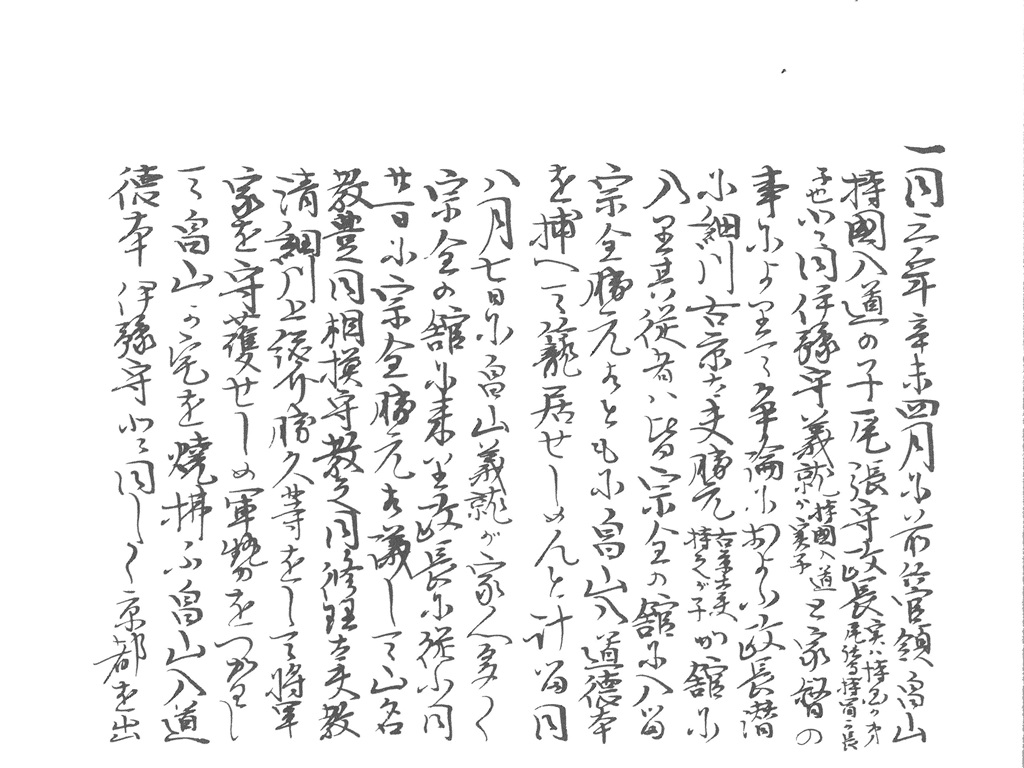 一同三年辛未四月に前管領畠山
持國入道の子尾張守政長実ハ持国の弟尾張守持冨之長
子也と同伊豫守義就持國入道が実子と家督の
事によりて争論におよふ政長潜
に細川右京大夫勝元右京大夫持之が子が舘に
入其従者ハ皆宗全の舘に入留
宗全勝元もともに畠山入道徳本
を捕へて籠居せしめんと計留同
八月七日に畠山義就が家人多く
宗全の舘に来里政長に従ふ同
廿一日に宗全勝元相議して山名
教豊同相模守教之同修理大夫教
清細川上総介勝久等をして将軍
家を守護せしめ軍勢をつかわし
て畠山の宅を焼拂ふ畠山入道
徳本伊豫守と同しく京都を出